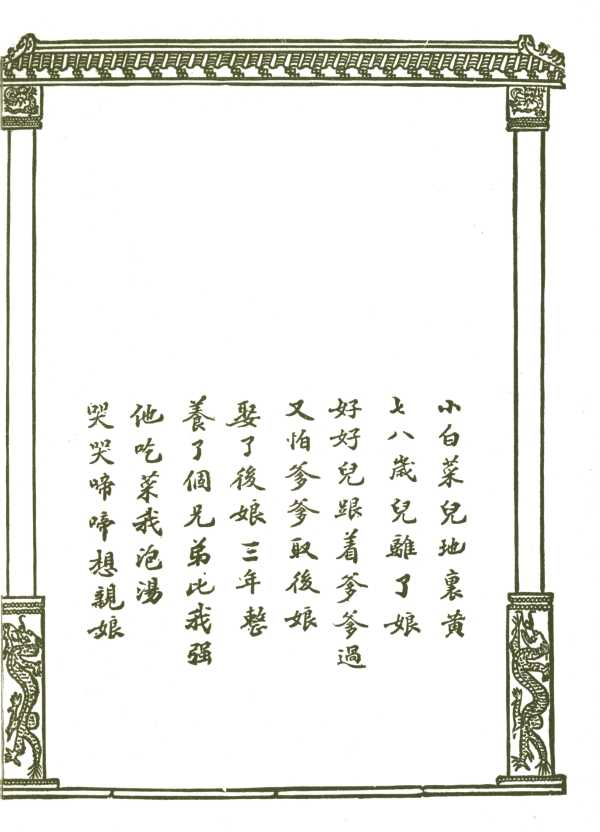 小白菜兒地裏黄
七八歲兒離了娘
好好兒跟着爹爹過
又怕爹爹取後娘
娶了後娘三年整
養了個兄弟比我强
他吃菜我泡湯
哭哭啼啼想親娘